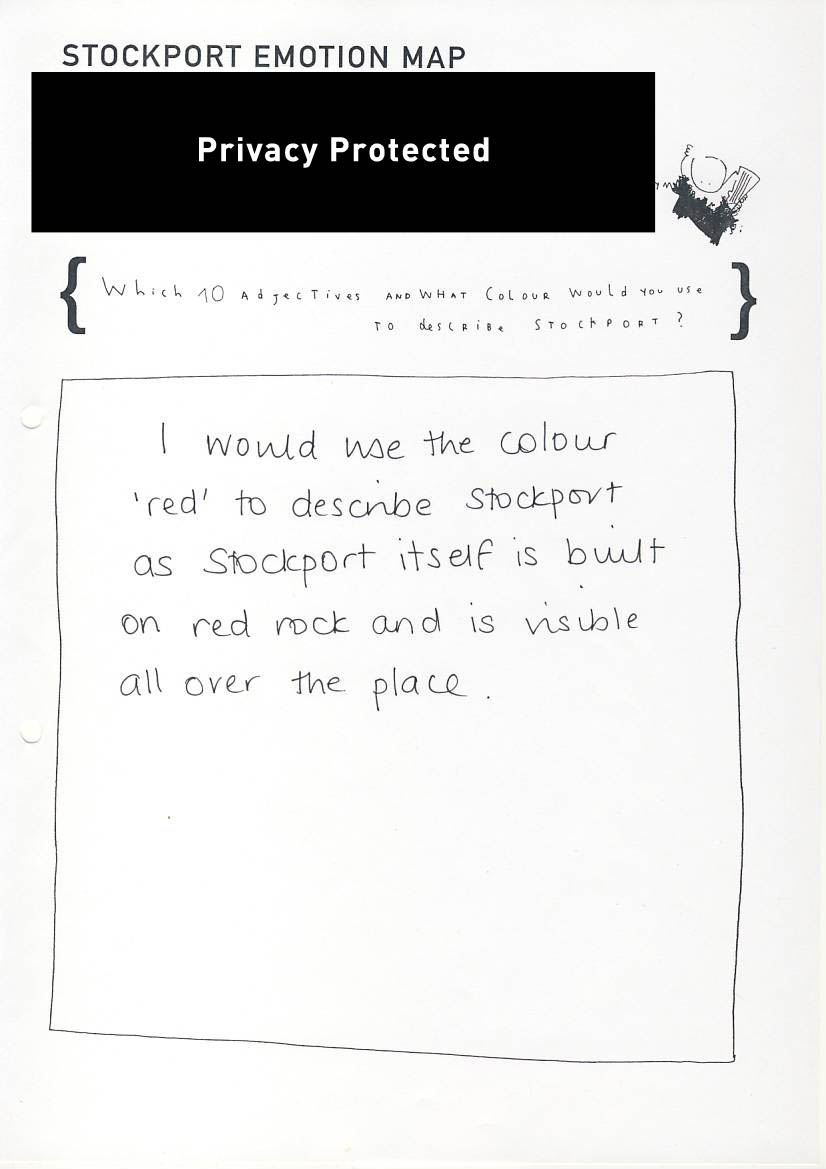 STOCKPORT EMOTION MAP
Privacy Protected
{ Which 10 AdjecTives AND WHAT COLOUR Would You use }
TO describe STOCKPORT?
I would use the colour
'red' to describe Stockport
as Stockport itself is built
on red rock and is visible
all over the place.